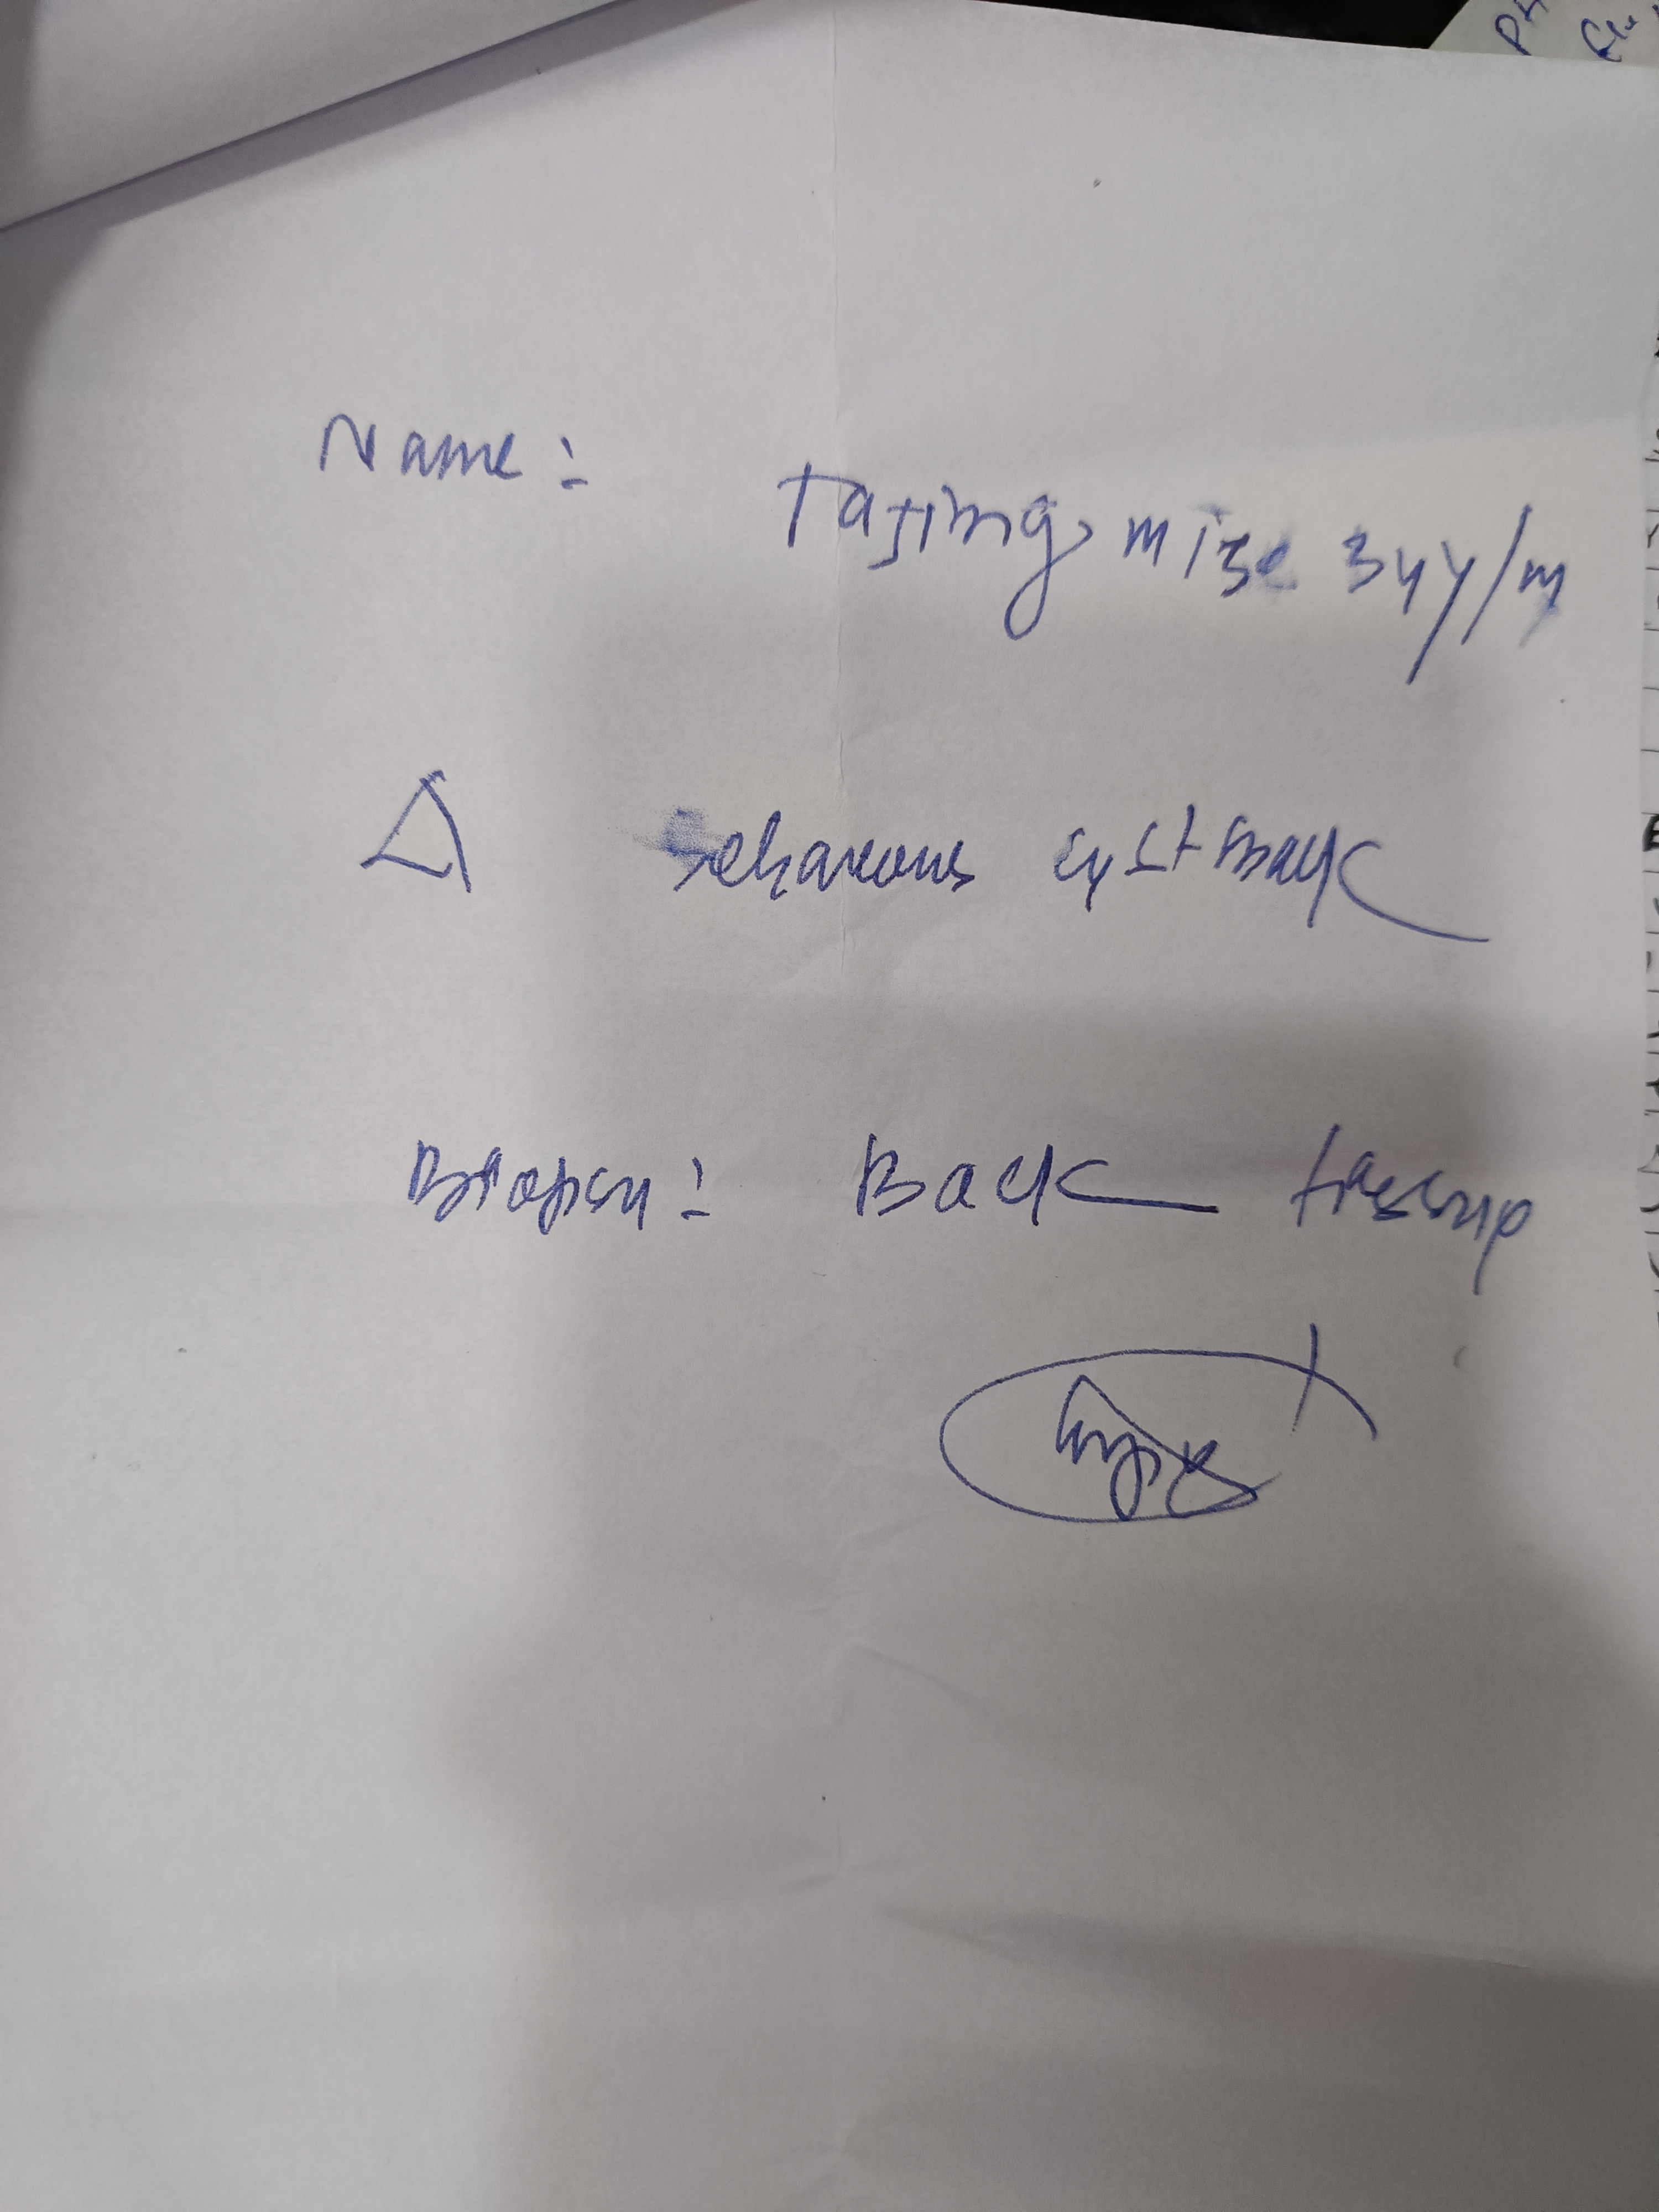 Name :-
Tajing mize 34y/m
Δ Sebaceous cyst Back
Biopsy :- Back tissue